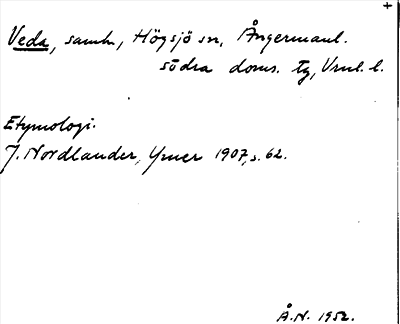 +
Veda, samh, Högsjö sn, Ångermanl.
södra doms. tg, Vrnl. l.
Etymologi.
J. Nordlander, Ymer 1907, s. 62.
Å.N. 1952.